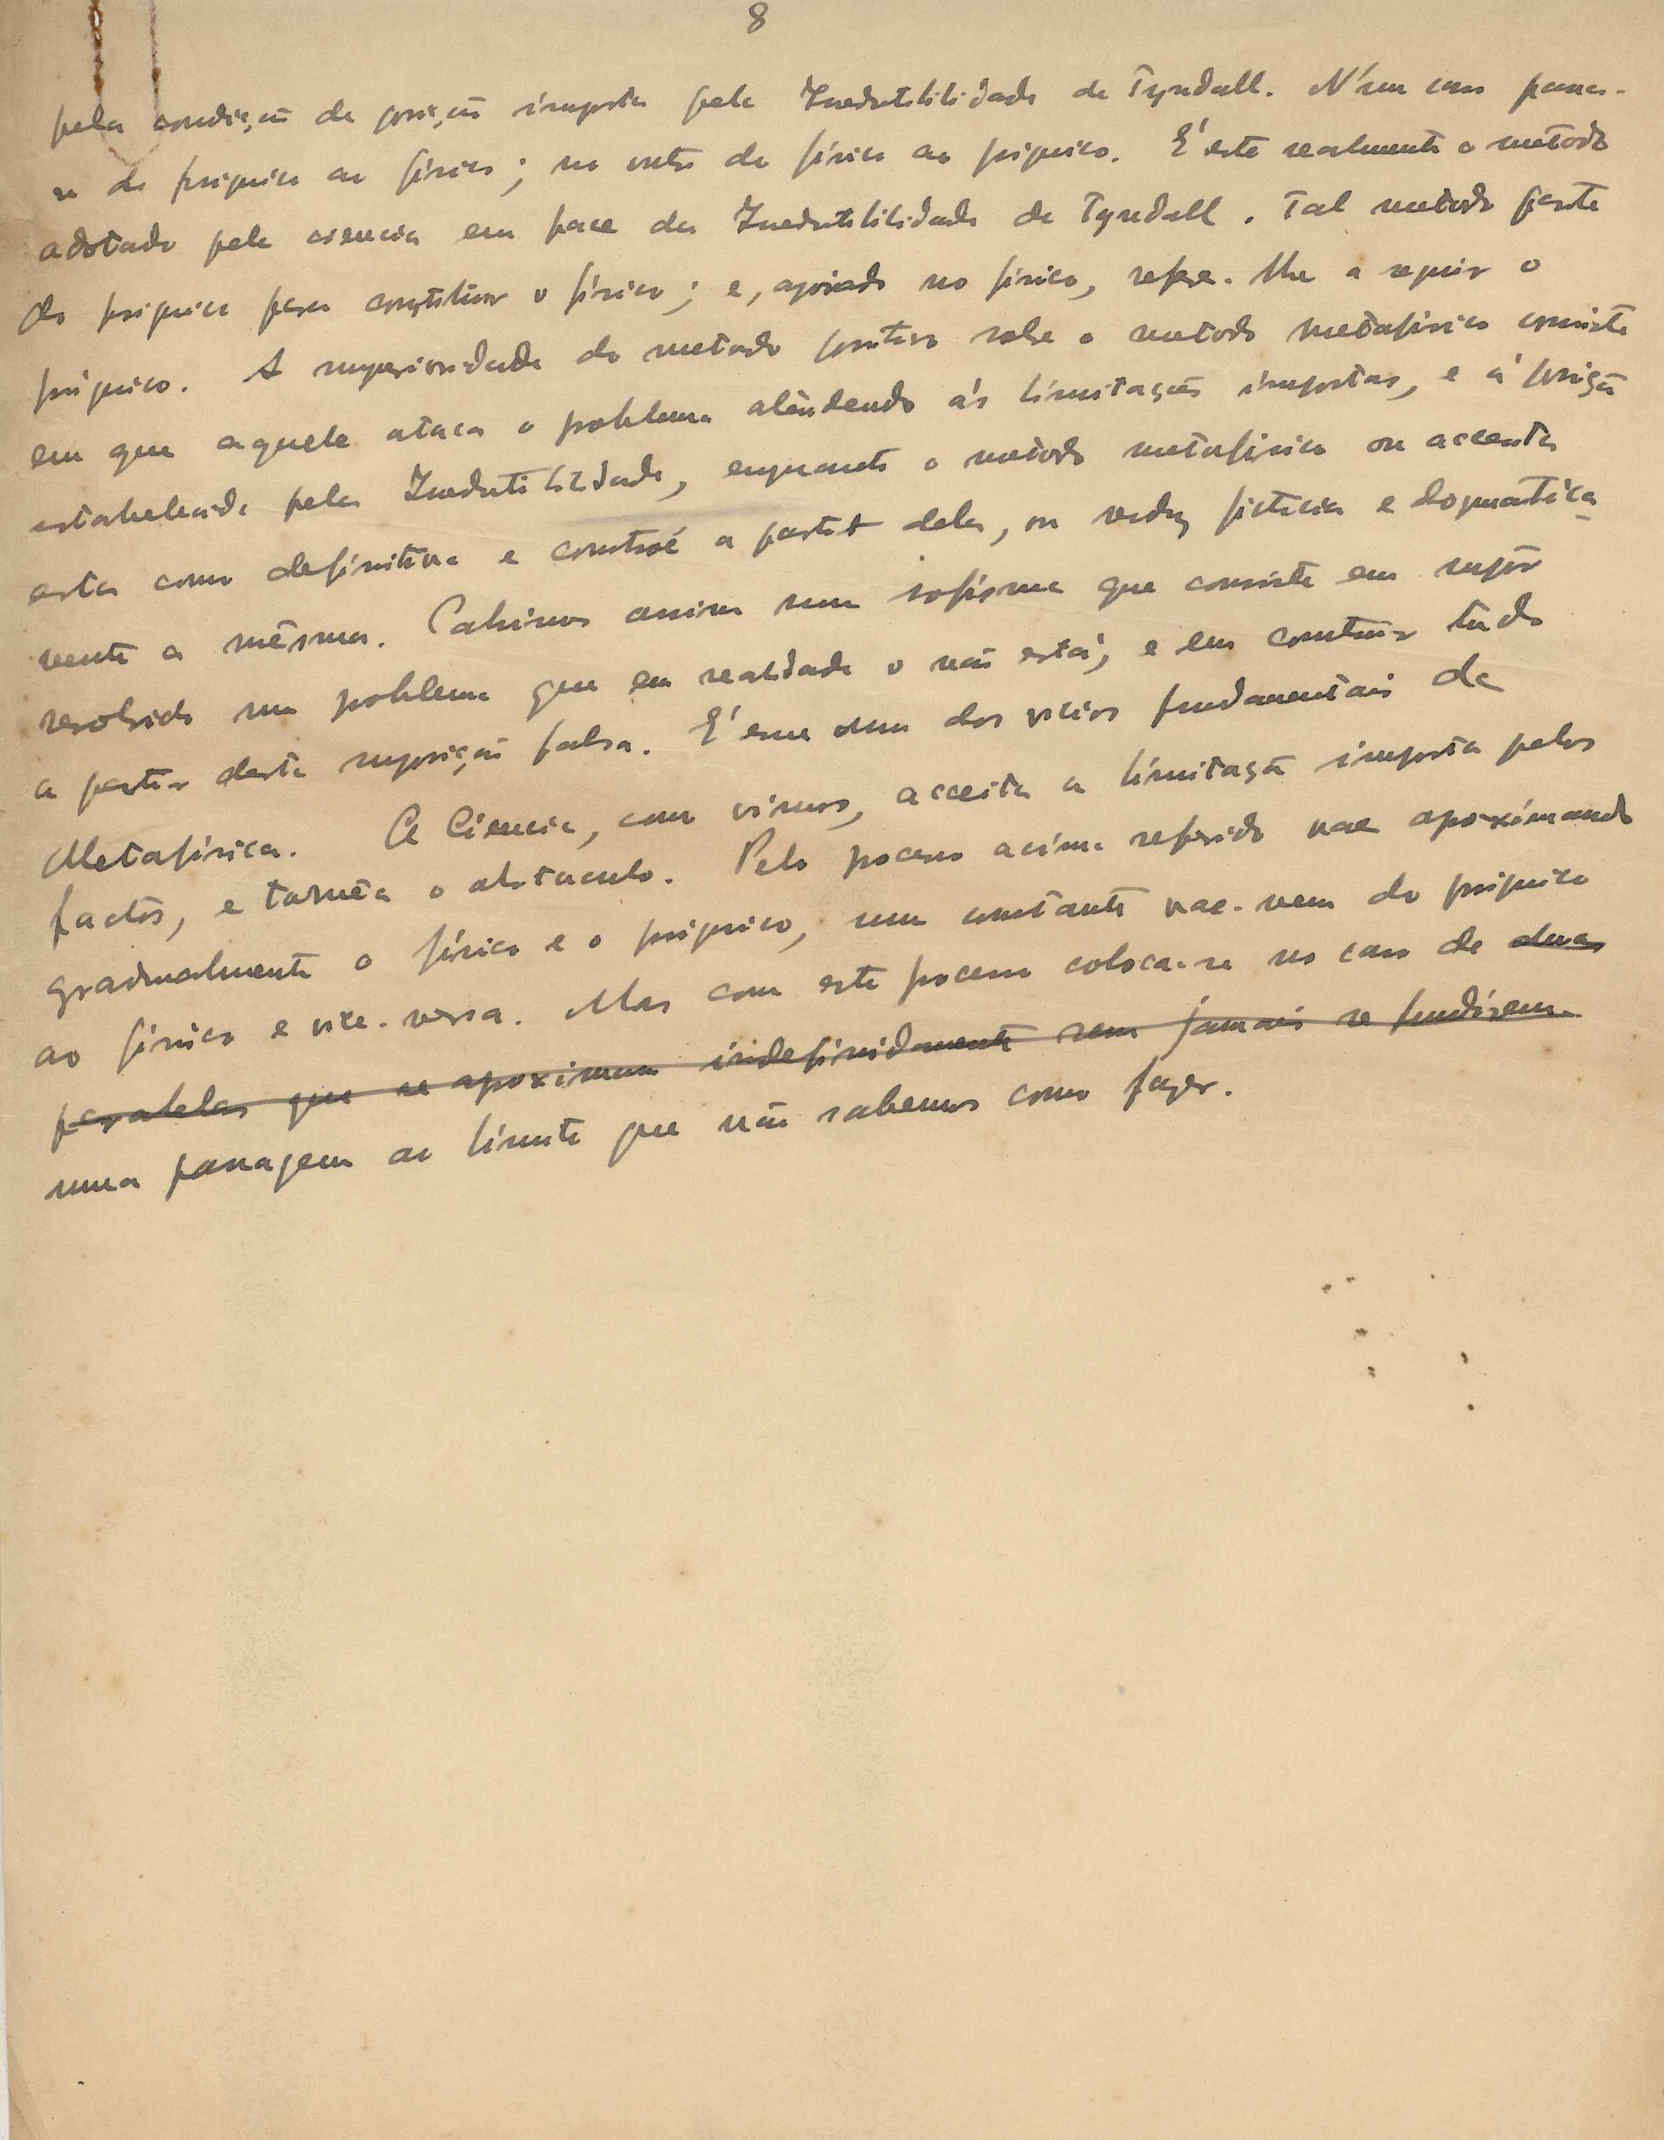 8
pela condição de posição imposta pela Inedutibilidade de Tyndall. N'um caso passa-
se do psiquico ao fisico; no outro do fisico ao psiquico. É este realmente o método
adotado pela ciencia em face da Inedutibilidade de Tyndall. Tal metodo parte
do psiquico para constituir o fisico; e, apoiado no fisico, refere-lhe a seguir o
psiquico. A superioridade do metodo positivo sobre o metodo metafisico consiste
em que aquele ataca o problema atendendo ás limitações impostas, e á posição
estabelecida pela Inedutibilidade, enquanto o metodo metafisico ou acceita
esta como definitiva e constroe a partir dela, ou reduz ficticia e dogmatica-
mente a mesma. Cahimos assim num sofisma que consiste em supôr
resolvido um problema que em realidade o não está, e em construir tudo
a partir desta suposição falsa. É esse um dos vicios fundamentais da
Metafisica. A Ciencia, como vimos, acceita a limitação imposta pelos
factos, e tornêa o obstaculo. Pelo processo acima referido vae aproximando
gradualmente o fisico e o psiquico, num constante vae-vem do psiquico
ao fisico e vice-versa. Mas com este processo coloca-se no caso de duas
paralelas que se aproximam indefinidamente sem jamais se fundirem.
uma passagem ao limite que não sabemos como fazer.